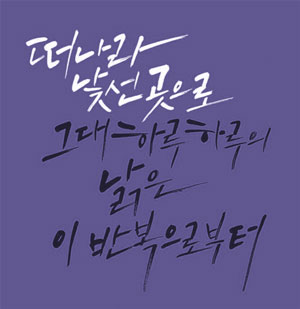 떠나라
낯선 곳으로
그대 하루하루의
낡은
이 반복으로부터